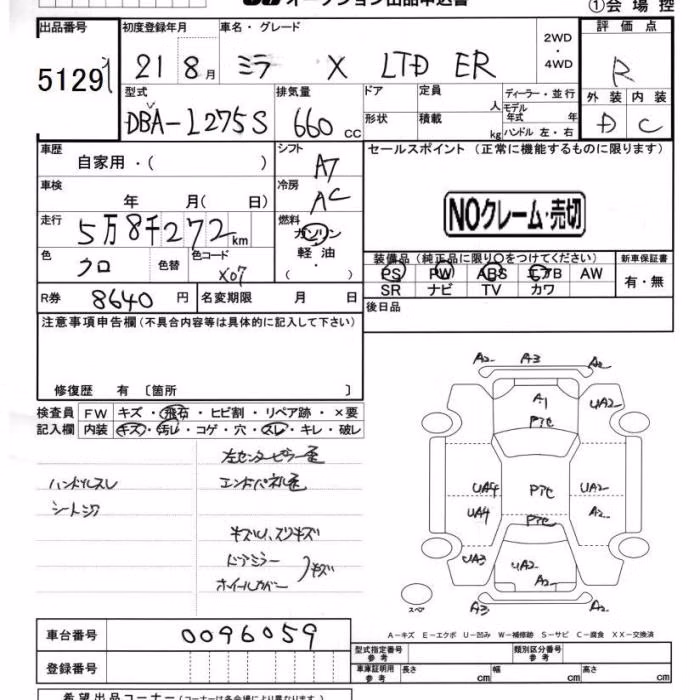 オークション出品申込書
①会場控
出品番号
51291
初度登録年月
21 8月
車名・グレード
ミラ X LTD ER
2WD
・
4WD
評価点
R
外装 内装
D C
型式
DBA-L275S
排気量
660 CC
ドア
定員
人
形状
積載
kg
ディーラー・並行
モデル年式 年
ハンドル 左・右
車歴
自家用・( )
シフト
A7
車検
年 月( 日)
冷房
AC
走行
5万8千272km
燃料
ガソリン
・
軽油
・
( )
色
クロ
色替
色コード
X07
R券
8640円
名変期限
月 日
セールスポイント (正常に機能するものに限ります)
NOクレーム・売切
装備品(純正品に限り○をつけてください)
PS PW ABS エアB AW
SR ナビ TV カワ
新車保証書
有・無
後日品
注意事項申告欄(不具合内容等は具体的に記入して下さい)
修復歴 有 〔箇所 〕
検査員記入欄
FW キズ・飛石・ヒビ割・リペア跡・×要
内装 キズ・汚レ・コゲ・穴・スレ・キレ・破レ
左センターピラー歪
ハンドルスレ
エンドパネル歪
シートシワ
キズU、スリキズ
ドアミラー
ホイールカバー
キズ
A2 A3 A2
A1
UA2
Pアセ
UA4 Pアセ UA2
UA4 A2
Pアセ
UA3 UA2
A2
A3 A2
スペア
A-キズ E-エクボ U-凹み W-補修跡 S-サビ C-腐食 XX-交換済
車台番号
0096059
登録番号
型式指定番号
参考
類別区分番号
参考
車庫証明用
参考
長さ cm
幅 cm
高さ cm
希望出品コーナー